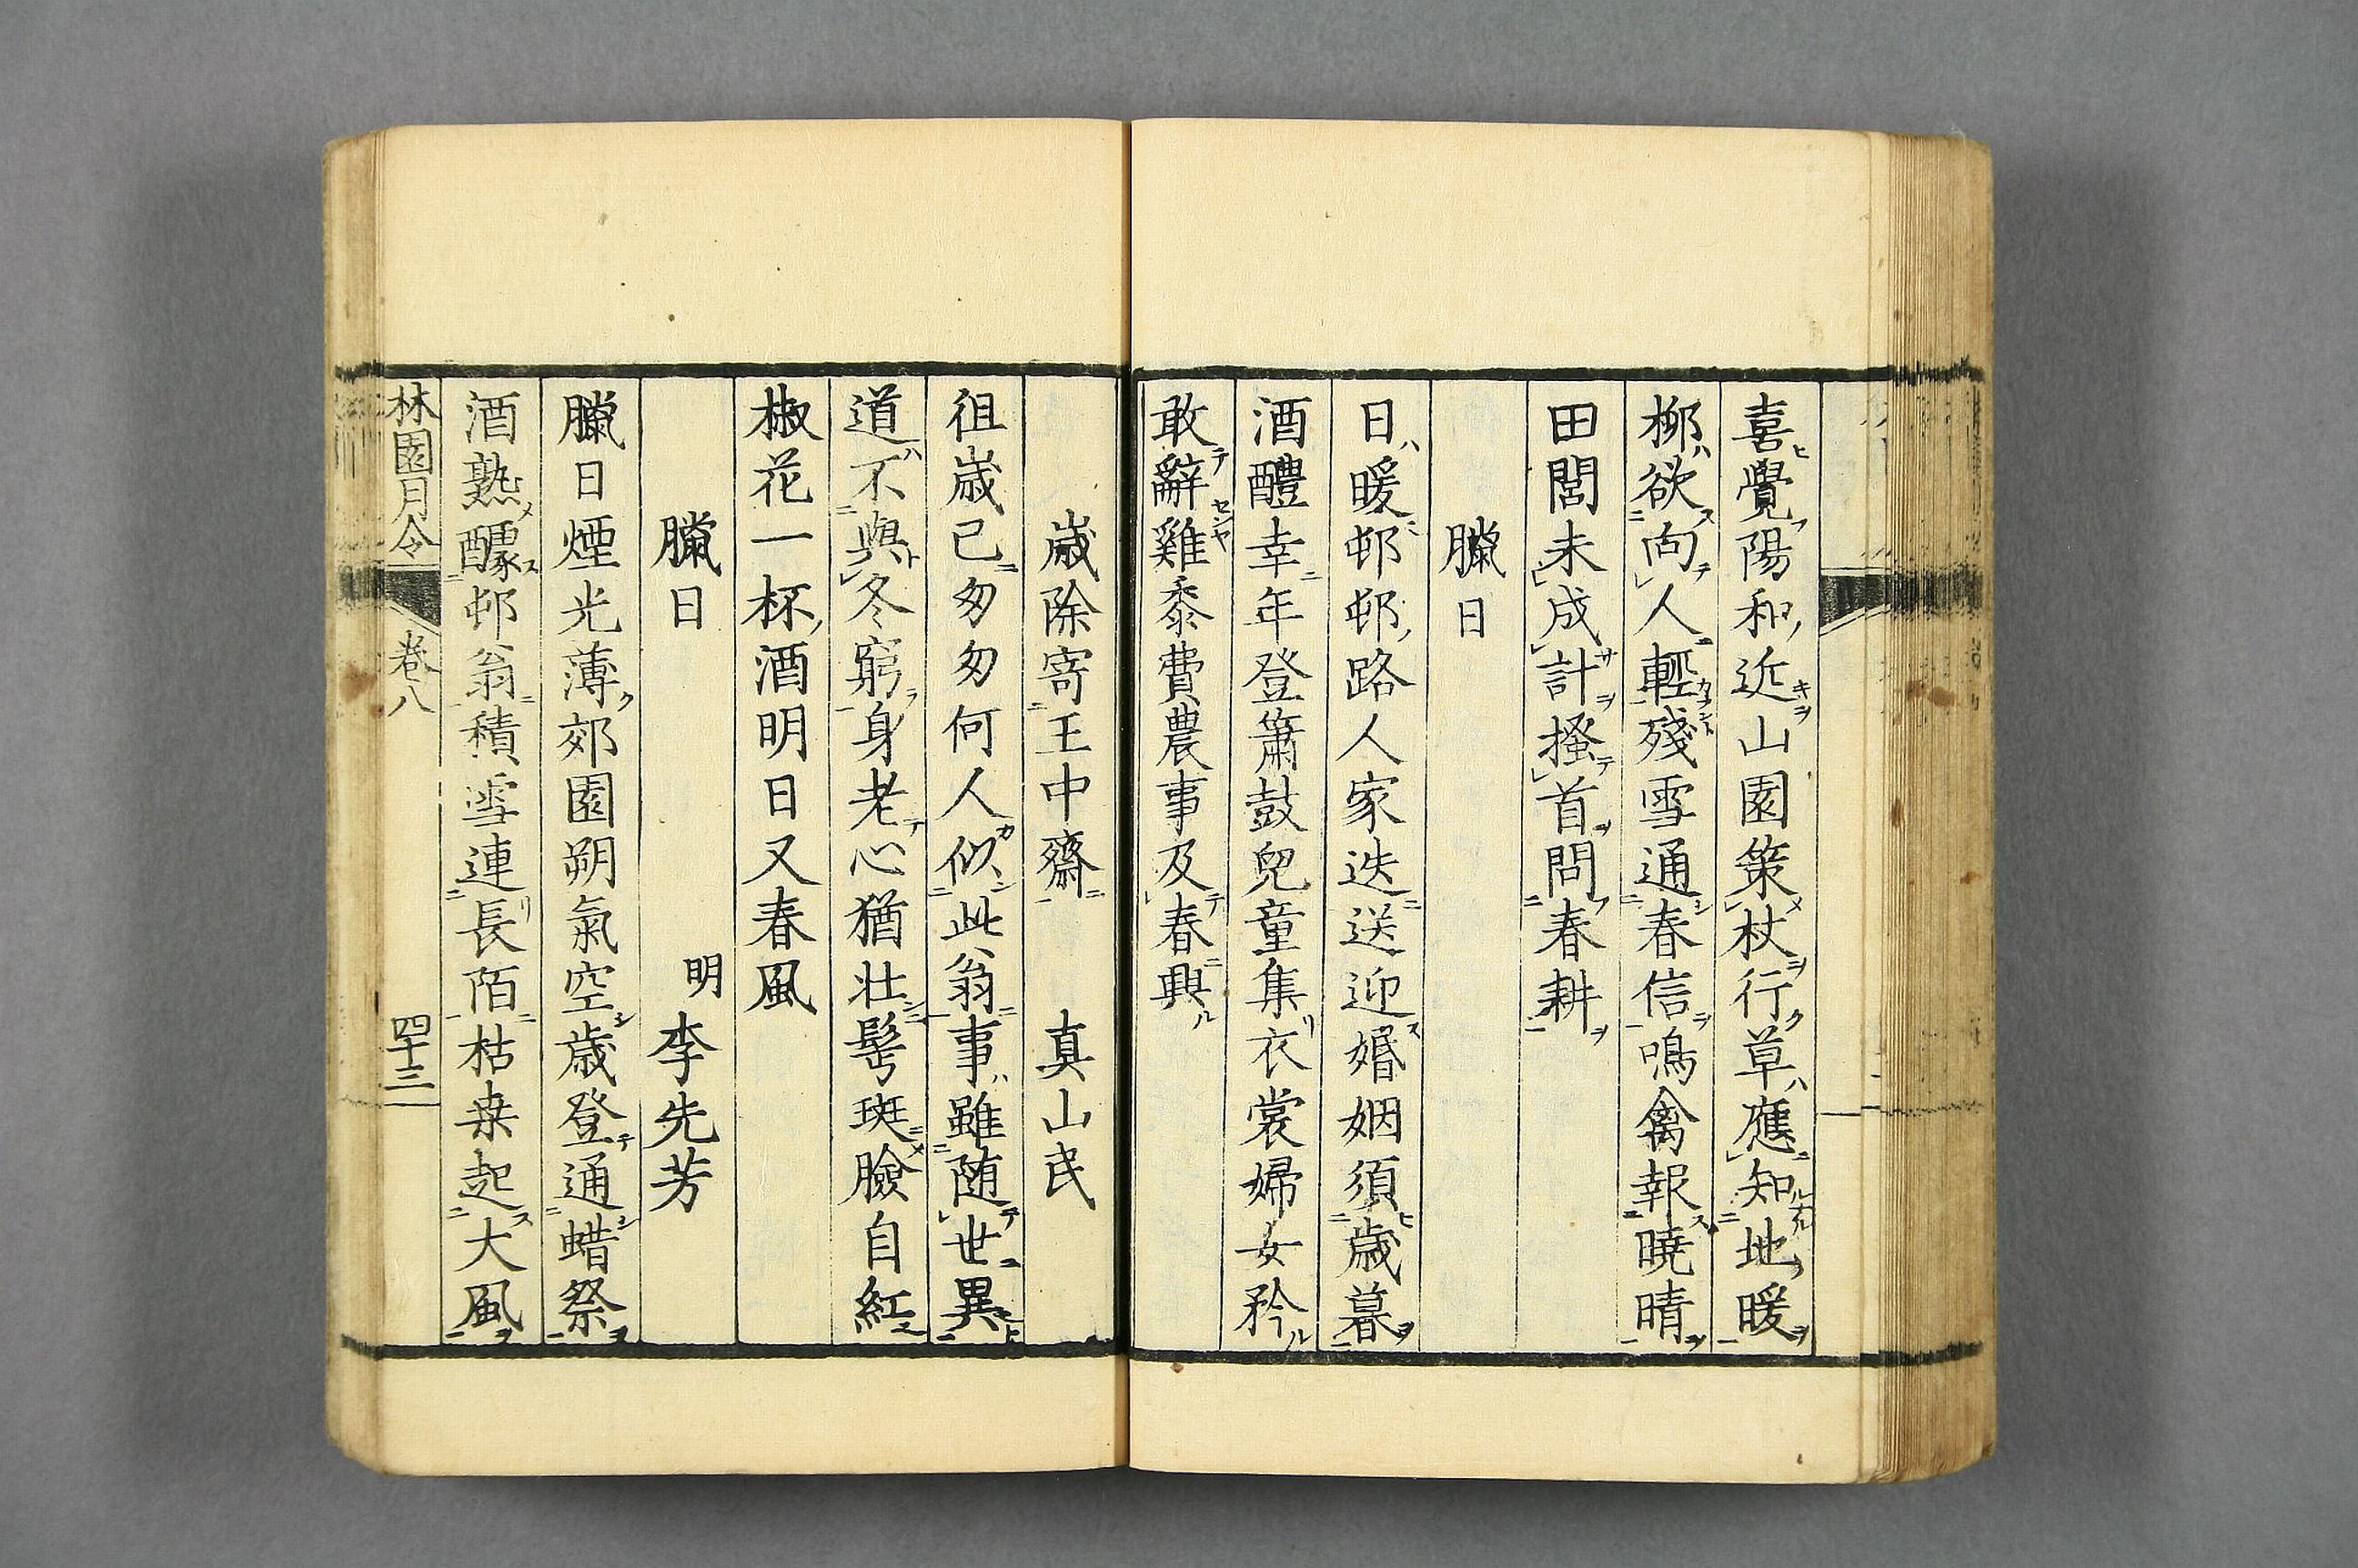 喜覺陽和近山園策杖行草應知地暖
柳欲向人輕殘雪通春信鳴禽報曉晴
田閭未成計搔首問春耕
臘日
日暖邨邨路人家迭送迎婚姻須歲暮
酒醴幸年登簫鼓兒童集衣裳婦女矜
敢辭雞黍費農事及春興
歲除寄王中齋 真山民
徂歲已匆匆何人似此翁事雖随世異
道不與冬窮身老心猶壮髩斑臉自紅
椒花一杯酒明日又春風
臘日 明 李先芳
臘日煙光薄郊園朔氣空歲登通蜡祭
酒熟醵邨翁積雪連長陌枯桒起大風
林園月令 卷八 四十三